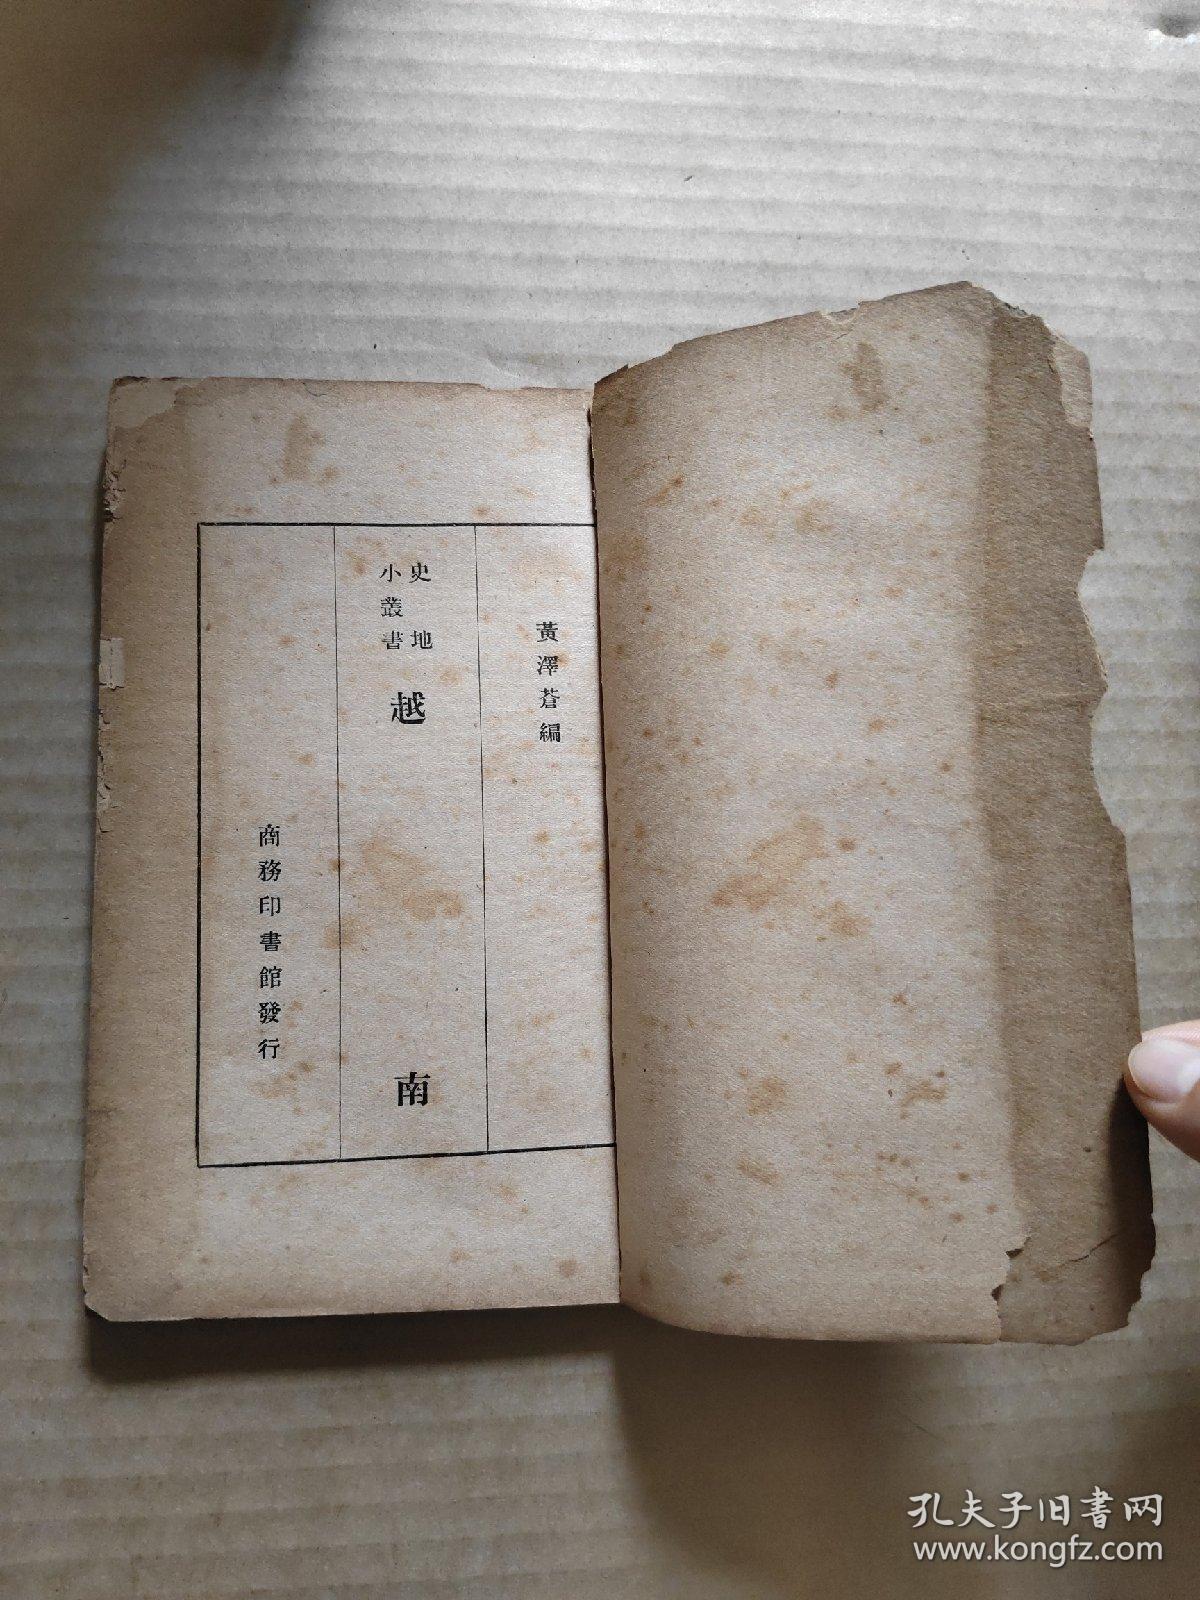 黃澤蒼編
史地
小叢書
越南
商務印書館發行
孔夫子旧书网
www.kongfz.com